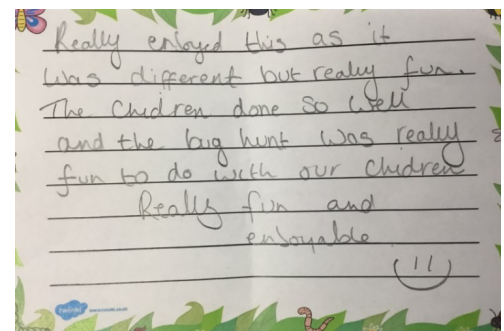 Really enloyed this as it
was different but really fun.
The Chidren done so well
and the bug hunt was really
fun to do with our Chidren
Really fun and
enjoyable
twinkl www.twinkl.co.uk